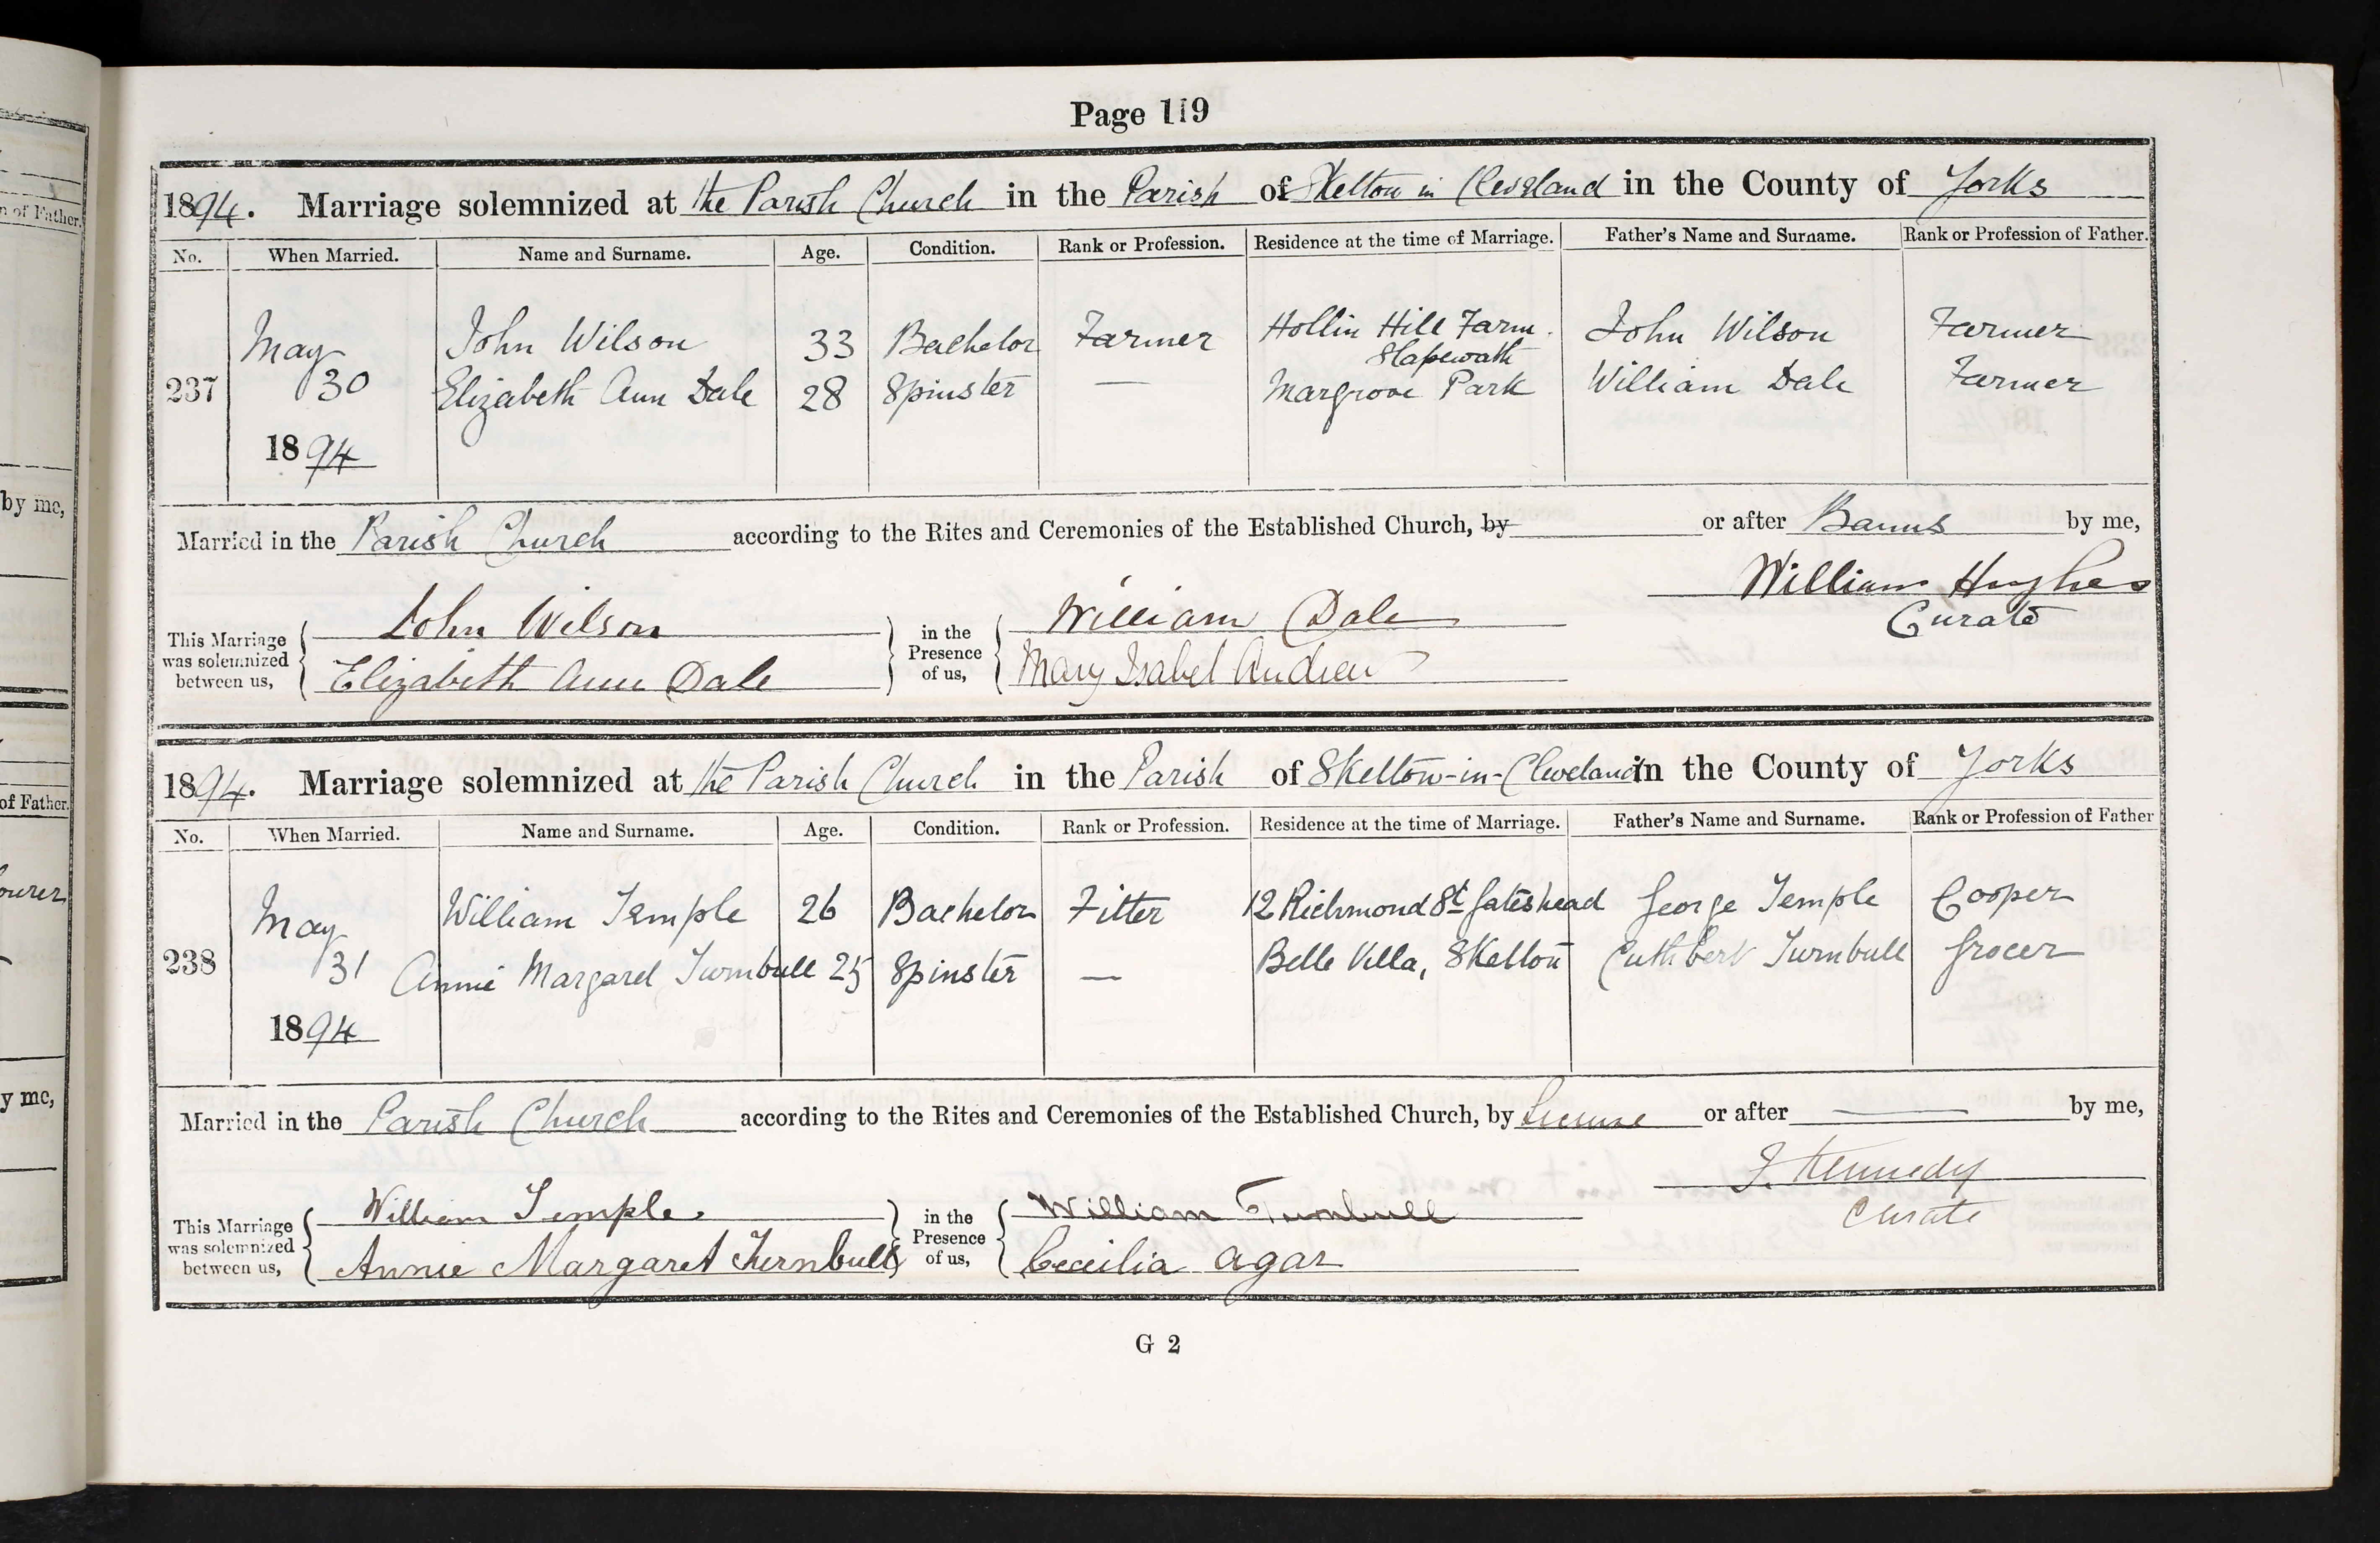 Page 119
1894. Marriage solemnized at the Parish Church in the Parish of Skelton in Cleveland in the County of Yorks
No. When Married. Name and Surname. Age. Condition. Rank or Profession. Residence at the time of Marriage. Father's Name and Surname. Rank or Profession of Father.
May John Wilson 33 Bachelor Farmer Hollin Hill Farm. Slapewath John Wilson Farmer
237 30 Elizabeth Ann Dale 28 Spinster — Margrove Park William Dale Farmer
1894
Married in the Parish Church according to the Rites and Ceremonies of the Established Church, by or after Banns by me,
William Hughes
Curate
This Marriage was solemnized between us, John Wilson in the Presence of us, William Dale
Elizabeth Ann Dale Mary Isabel Andrew
1894. Marriage solemnized at the Parish Church in the Parish of Skelton-in-Cleveland in the County of Yorks
No. When Married. Name and Surname. Age. Condition. Rank or Profession. Residence at the time of Marriage. Father's Name and Surname. Rank or Profession of Father
May William Temple 26 Bachelor Fitter 12 Richmond St Gateshead George Temple Cooper
238 31 Annie Margaret Turnbull 25 Spinster — Belle Villa, Skelton Cuthbert Turnbull Grocer
1894
Married in the Parish Church according to the Rites and Ceremonies of the Established Church, by License or after — by me,
J. Kennedy
Curate
This Marriage was solemnized between us, William Temple. in the Presence of us, William Turnbull
Annie Margaret Turnbull Cecilia Agar
G 2
n of Father.
by me,
of Father.
ourer
y me,